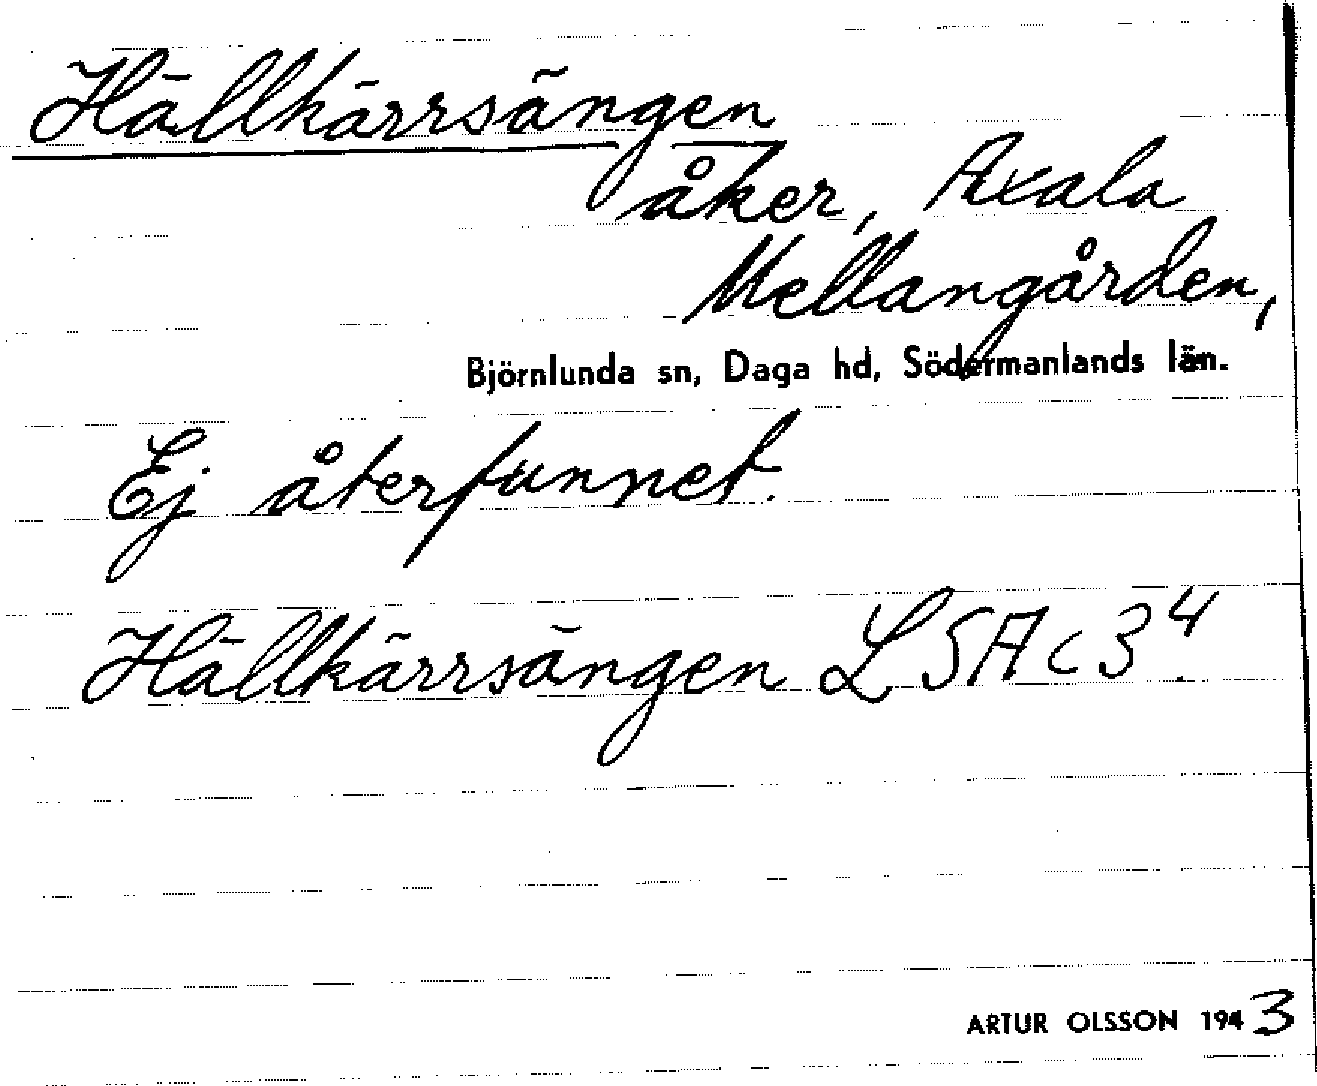 Hällkärrsängen
åker, Axala
Mellangården,
Björnlunda sn, Daga hd, Södermanlands län.
Ej återfunnet.
Hällkärrsängen LSA c 3⁴.
ARTUR OLSSON 1943